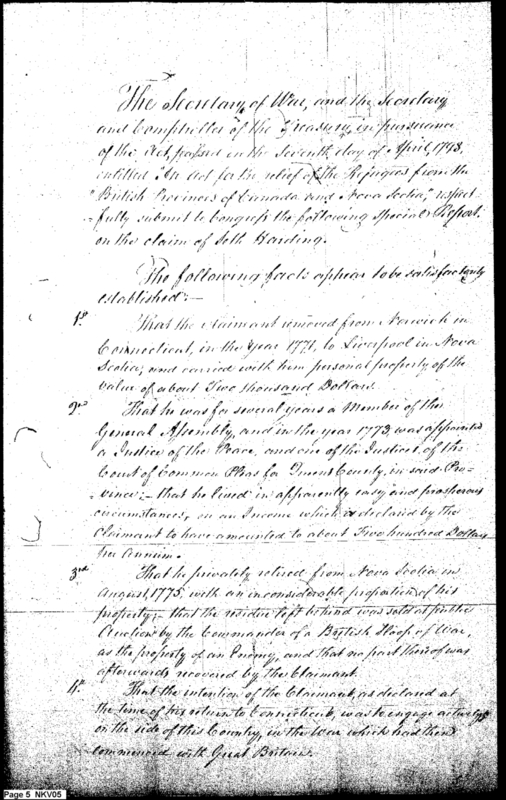 The Secretary of War, and the Secretary
and Comptroller of the Treasury, in pursuance
of the Act, passed on the Seventh day of April, 1798,
entitled "An Act for the relief of the Refugees from the
"British Provinces of Canada and Nova Scotia," respect-
-fully submit to Congress the following Special Report
on the claim of Seth Harding.
The following facts appear to be satisfactorily
established:—
1st. That the Claimant removed from Norwich in
Connecticut, in the Year 1771, to Liverpool in Nova
Scotia, and carried with him personal property of the
value of about Two thousand Dollars.
2nd That he was for several years a Member of the
General Assembly, and in the year 1773, was appointed
a Justice of the Peace, and one of the Justices of the
Court of Common Pleas for Queens County, in said Pro-
-vince:— that he lived in apparently easy and prosperous
circumstances, on an Income which is declared by the
Claimant to have amounted to about Two hundred Dollars
per Annum.
3rd That he privately retired from Nova Scotia in
August, 1775, with an inconsiderable proportion of his
property;— that the residue left behind was sold at public
Auction by the Commander of a British Sloop of War,
as the property of an Enemy, and that no part thereof was
afterwards recovered by the Claimant.
4th. That the intention of the Claimant, as declared at
the time of his return to Connecticut, was to engage actively
on the side of this Country, in the War which had then
commenced with Great Britain.
Page 5 NKV05